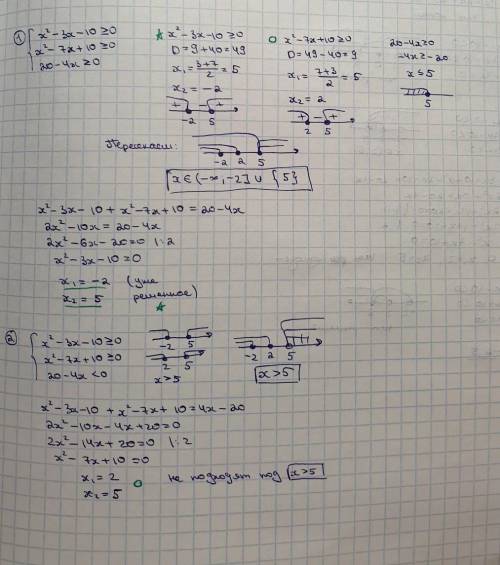 ① { x² - 3x - 10 ≥ 0
x² - 7x + 10 ≥ 0
20 - 4x ≥ 0
★ x² - 3x - 10 ≥ 0
D = 9 + 40 = 49
x₁ = (3+7)/2 = 5
x₂ = -2
+ - +
-2 5
○ x² - 7x + 10 ≥ 0
D = 49 - 40 = 9
x₁ = (7+3)/2 = 5
x₂ = 2
+ - +
2 5
20 - 4x ≥ 0
-4x ≥ -20
x ≤ 5
5
Пересекаем:
-2 2 5
x ∈ (-∞, -2] ∪ {5}
x² - 3x - 10 + x² - 7x + 10 = 20 - 4x
2x² - 10x = 20 - 4x
2x² - 6x - 20 = 0 |:2
x² - 3x - 10 = 0
x₁ = -2 (уже
x₂ = 5 решенное)
★
② { x² - 3x - 10 ≥ 0
x² - 7x + 10 ≥ 0
20 - 4x < 0
-2 5
2 5
x > 5
-2 2 5
x > 5
x² - 3x - 10 + x² - 7x + 10 = 4x - 20
2x² - 10x - 4x + 20 = 0
2x² - 14x + 20 = 0 |:2
x² - 7x + 10 = 0
x₁ = 2
x₂ = 5 ○ не подходят под x > 5